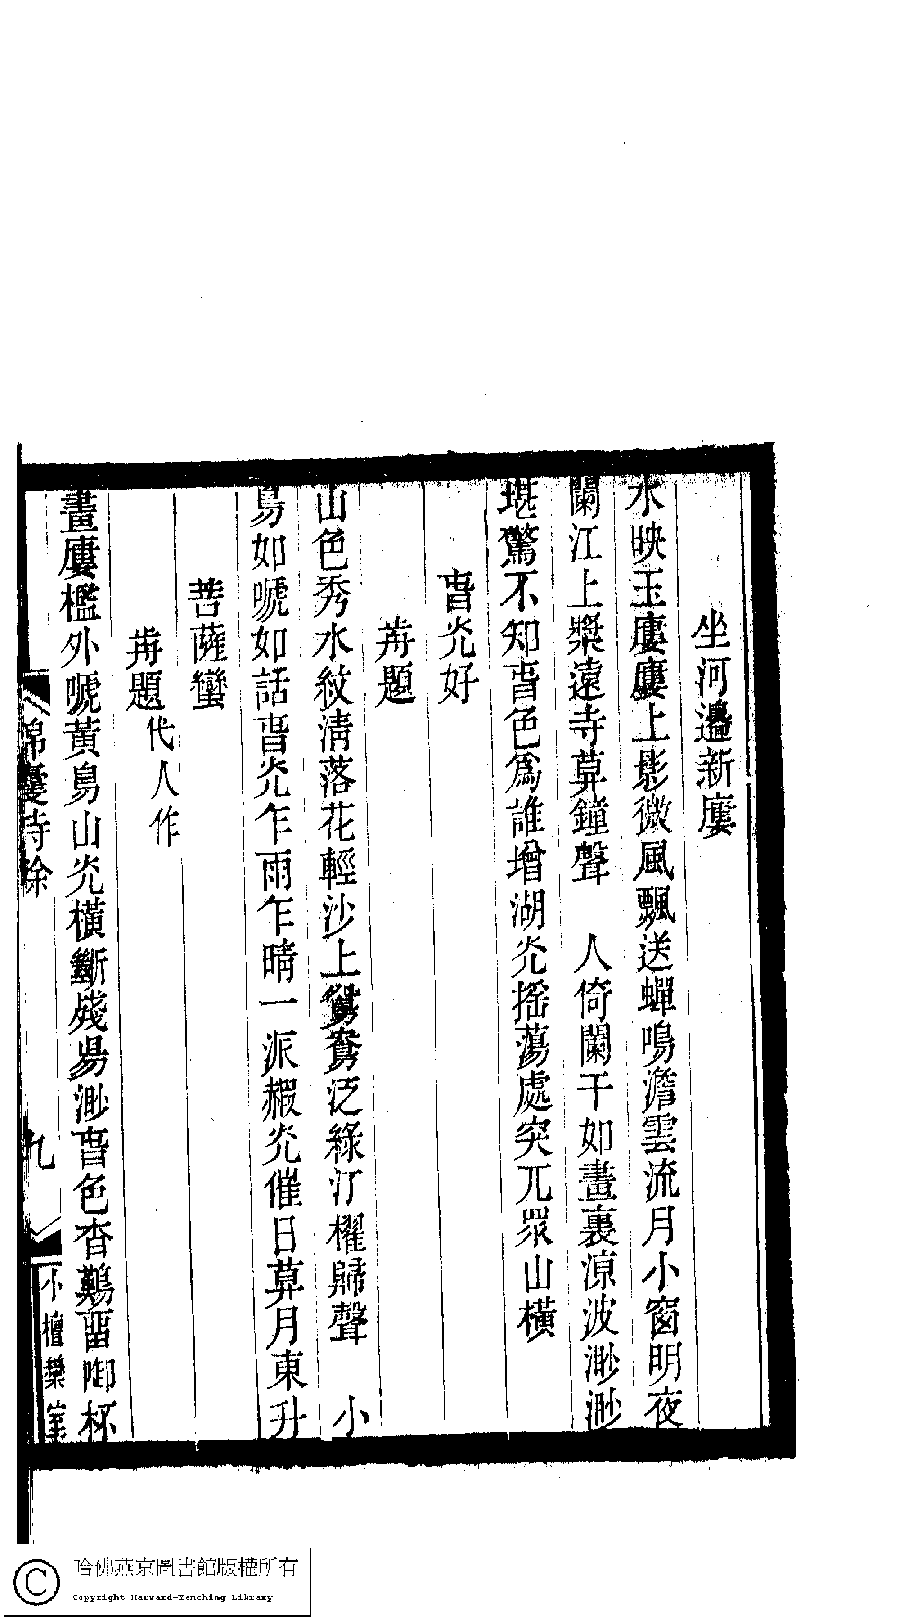 坐河邊新廔
水映玉廔廔上影微風飄送蟬鳴澹雲流月小窗明夜
闌江上槳遠寺莫鐘聲　人倚闌干如畫裏涼波渺渺
堪驚不知旾色爲誰增湖灮搖蕩處突兀眾山橫
旾灮好
再題
山色秀水紋淸落花輕沙上鴛鴦泛綠汀櫂歸聲　小
鳥如嗁如話旾灮乍雨乍晴一派赮灮催日莫月東升
菩薩蠻
再題代人作
畫廔檻外嗁黃鳥山灮橫斷殘昜渺旾色杳難畱啣杯
錦囊詩餘
九
小檀欒室
哈佛燕京圖書館版權所有
Copyright Harvard-Yenching Library